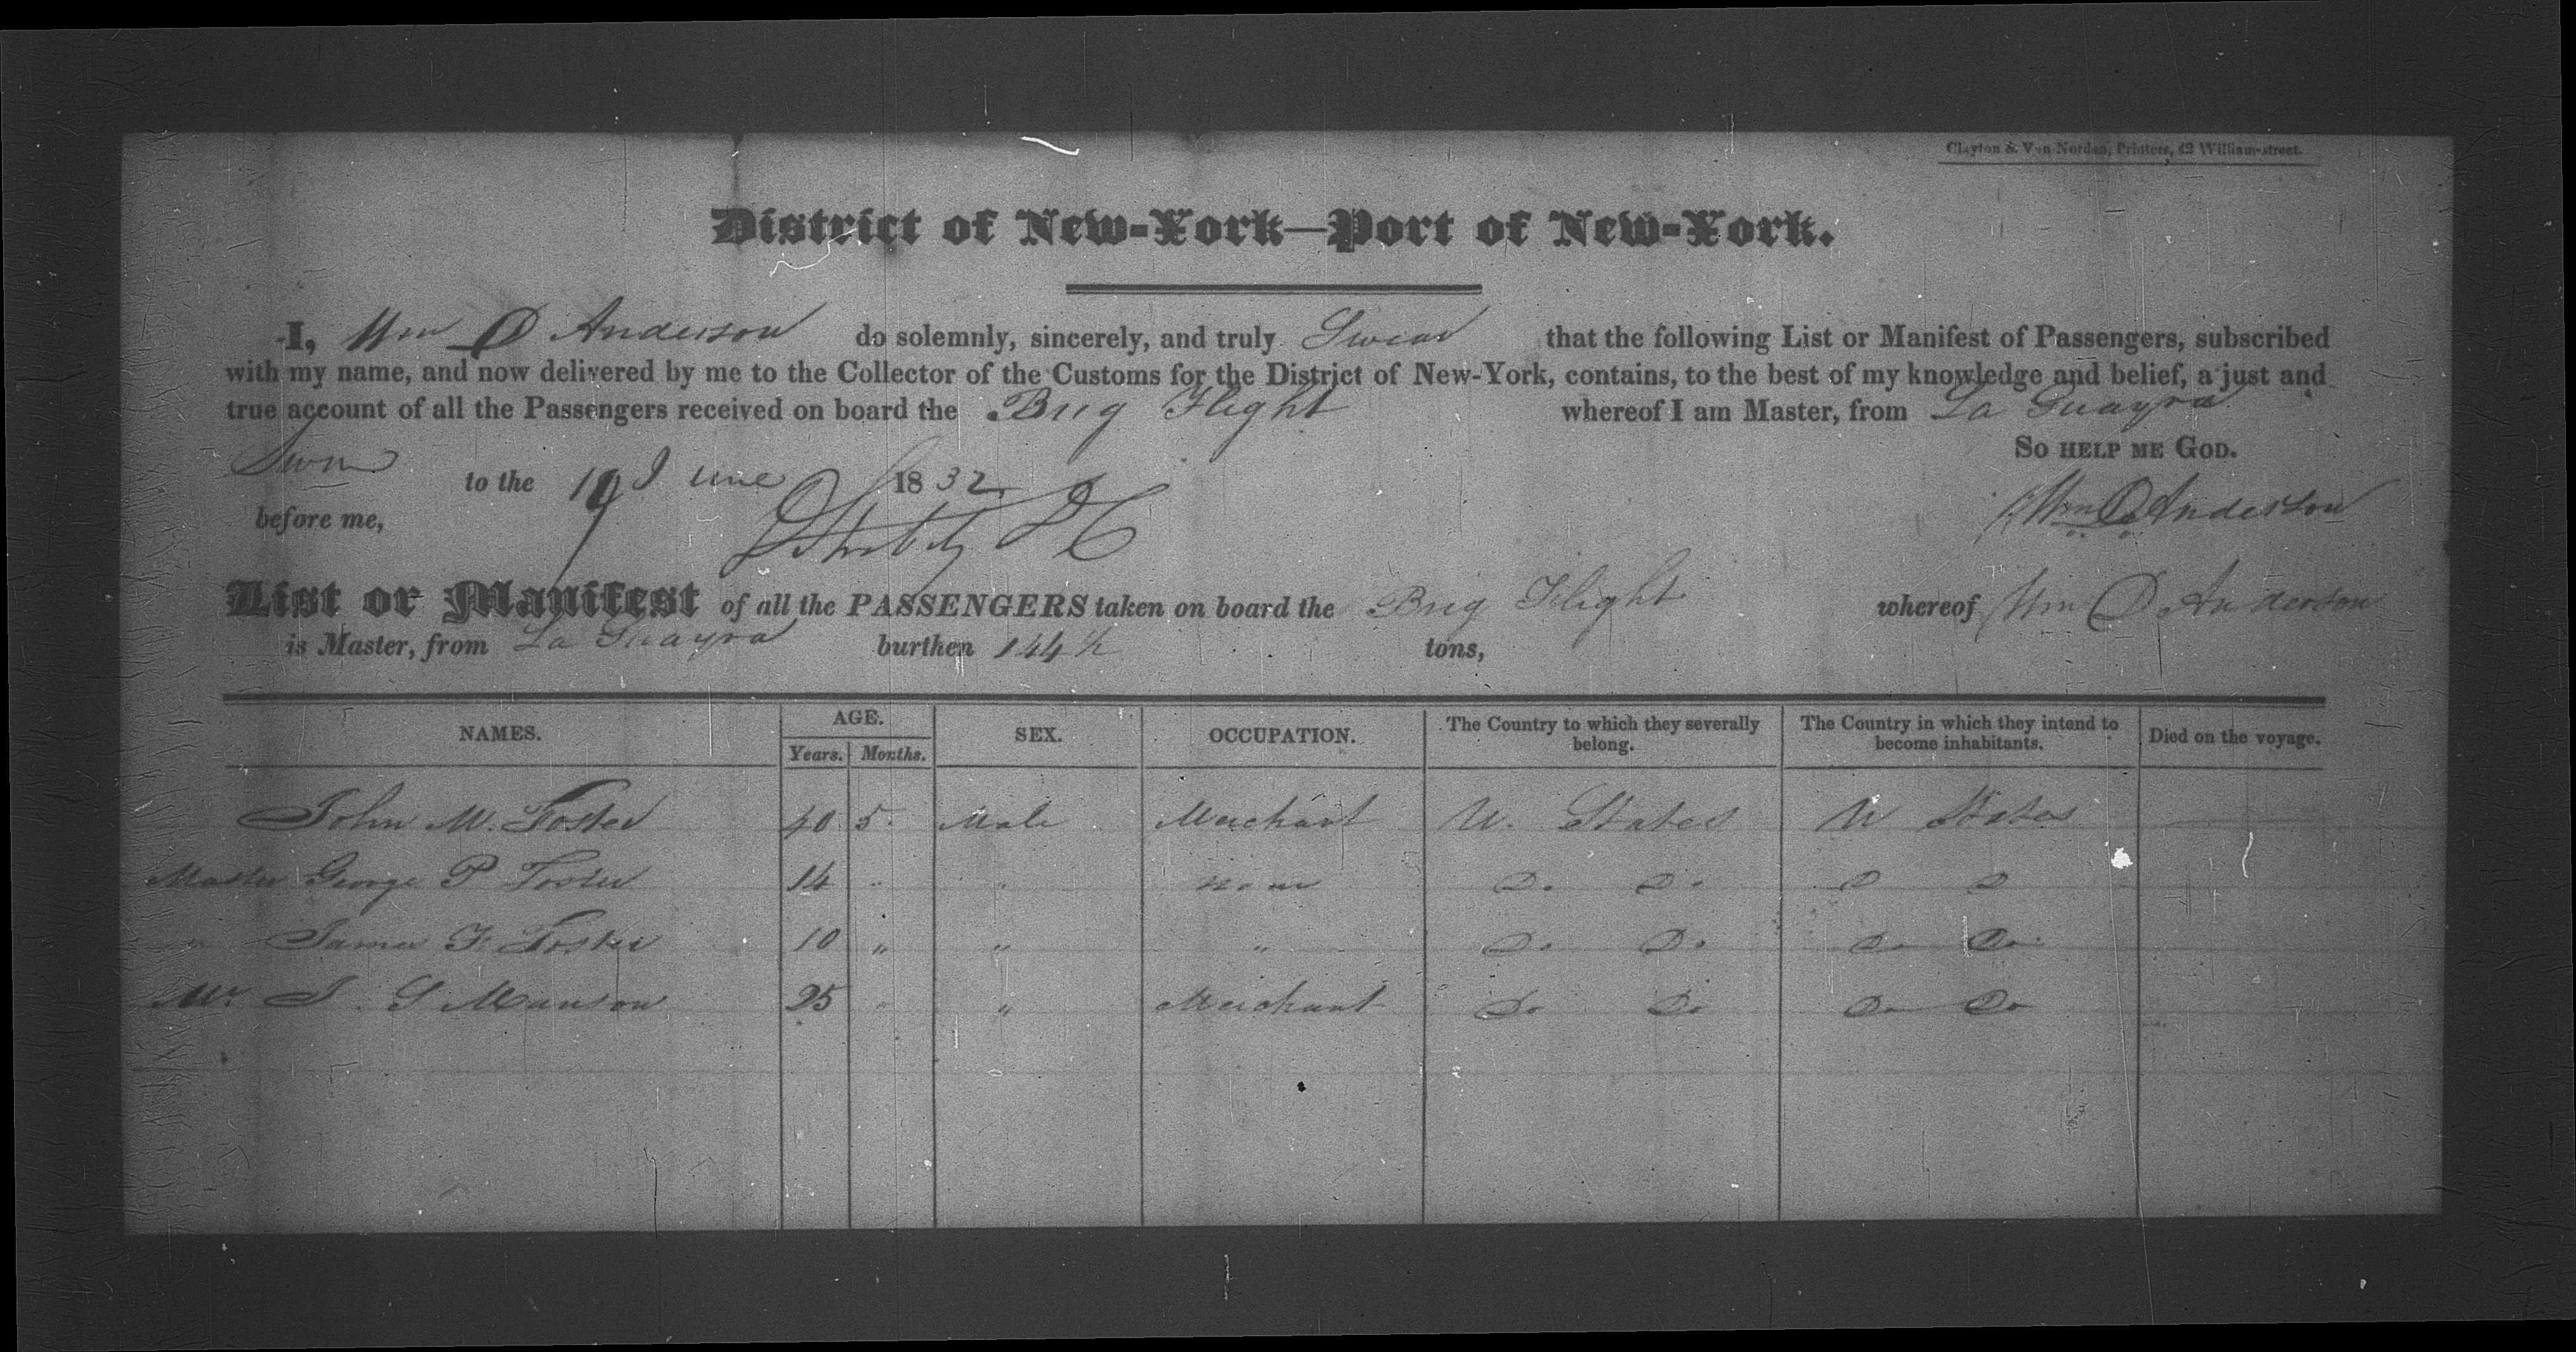 Clayton & Van Norden, Printers, 42 William-street.
District of New-York—Port of New-York.
I, Wm D Anderson do solemnly, sincerely, and truly Swear that the following List or Manifest of Passengers, subscribed
with my name, and now delivered by me to the Collector of the Customs for the District of New-York, contains, to the best of my knowledge and belief, a just and
true account of all the Passengers received on board the Brig Flight whereof I am Master, from La Guayra
So help me God.
Sworn to the 19 June 1832
before me,
Wm D Anderson
List or Manifest of all the PASSENGERS taken on board the Brig Flight whereof Wm D Anderson
is Master, from La Guayra burthen 144 ½ tons,
NAMES. AGE. Years. Months. SEX. OCCUPATION. The Country to which they severally belong. The Country in which they intend to become inhabitants. Died on the voyage.
John M. Foster 40 5 Male Merchant U. States U States
Master George P Foster 14 " " none Do. Do. D D
" James F. Foster 10 " " " Do. Do. Do Do
Mr J S Manson 25 " " Merchant Do Do Do Do